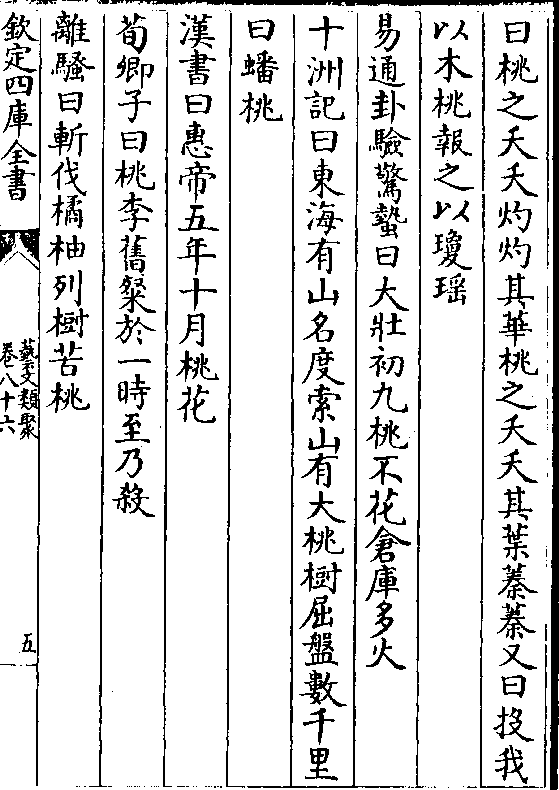 曰桃之夭夭灼灼其華桃之夭夭其葉蓁蓁又曰投我
以木桃報之以瓊瑤
易通卦驗驚蟄曰大壯初九桃不花倉庫多火
十洲記曰東海有山名度索山有大桃樹屈盤數千里
曰蟠桃
漢書曰惠帝五年十月桃花
荀卿子曰桃李舊粲於一時至乃殺
離騷曰斬伐橘柚列樹苦桃
欽定四庫全書
藝文類聚
卷八十六
五